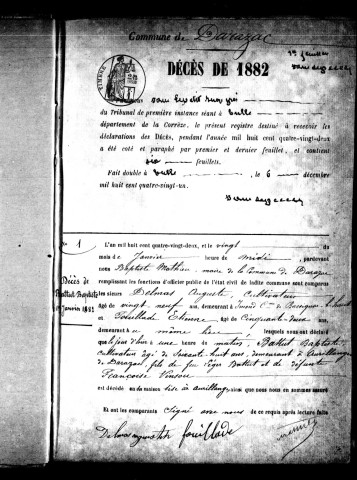 Commune de Darazac
1er feuillet
DÉCÈS DE 1882
TIMBRE
du Tribunal de première instance séant à Tulle
département de la Corrèze, le présent registre destiné à recevoir les
déclarations des Décès, pendant l'année mil huit cent quatre-vingt-deux
a été coté et paraphé par premier et dernier feuillet, et contient
six feuillets.
Fait double à Tulle le 6 décembre
mil huit cent quatre-vingt-un.
No 1
Décès de
Battut Baptiste
janvier 1882
L'an mil huit cent quatre-vingt-deux, et le vingt du
mois de Janvier heure de midi, pardevant
nous Baptiste Mathieu maire de la Commune de Darazac
remplissant les fonctions d'officier public de l'état civil de ladite commune sont comparus
les sieurs Delmas Auguste, Cultivateur
âgé de vingt neuf ans, demeurant à
et Fouillade Etienne âgé de Cinquante deux ans,
demeurant au même lieu, lesquels nous ont déclaré
que le jour d'hier à une heure du matin, Battut Baptiste
Cultivateur âgé de Soixante huit ans, demeurant à
de Darazac, fils de feu Léger Battut et de défunte
Françoise
est décédé en sa maison sise à ainsi que nous nous en sommes assuré
Et ont les comparants Signé avec nous de ce requis après lecture faite
Delmas auguste fouillade